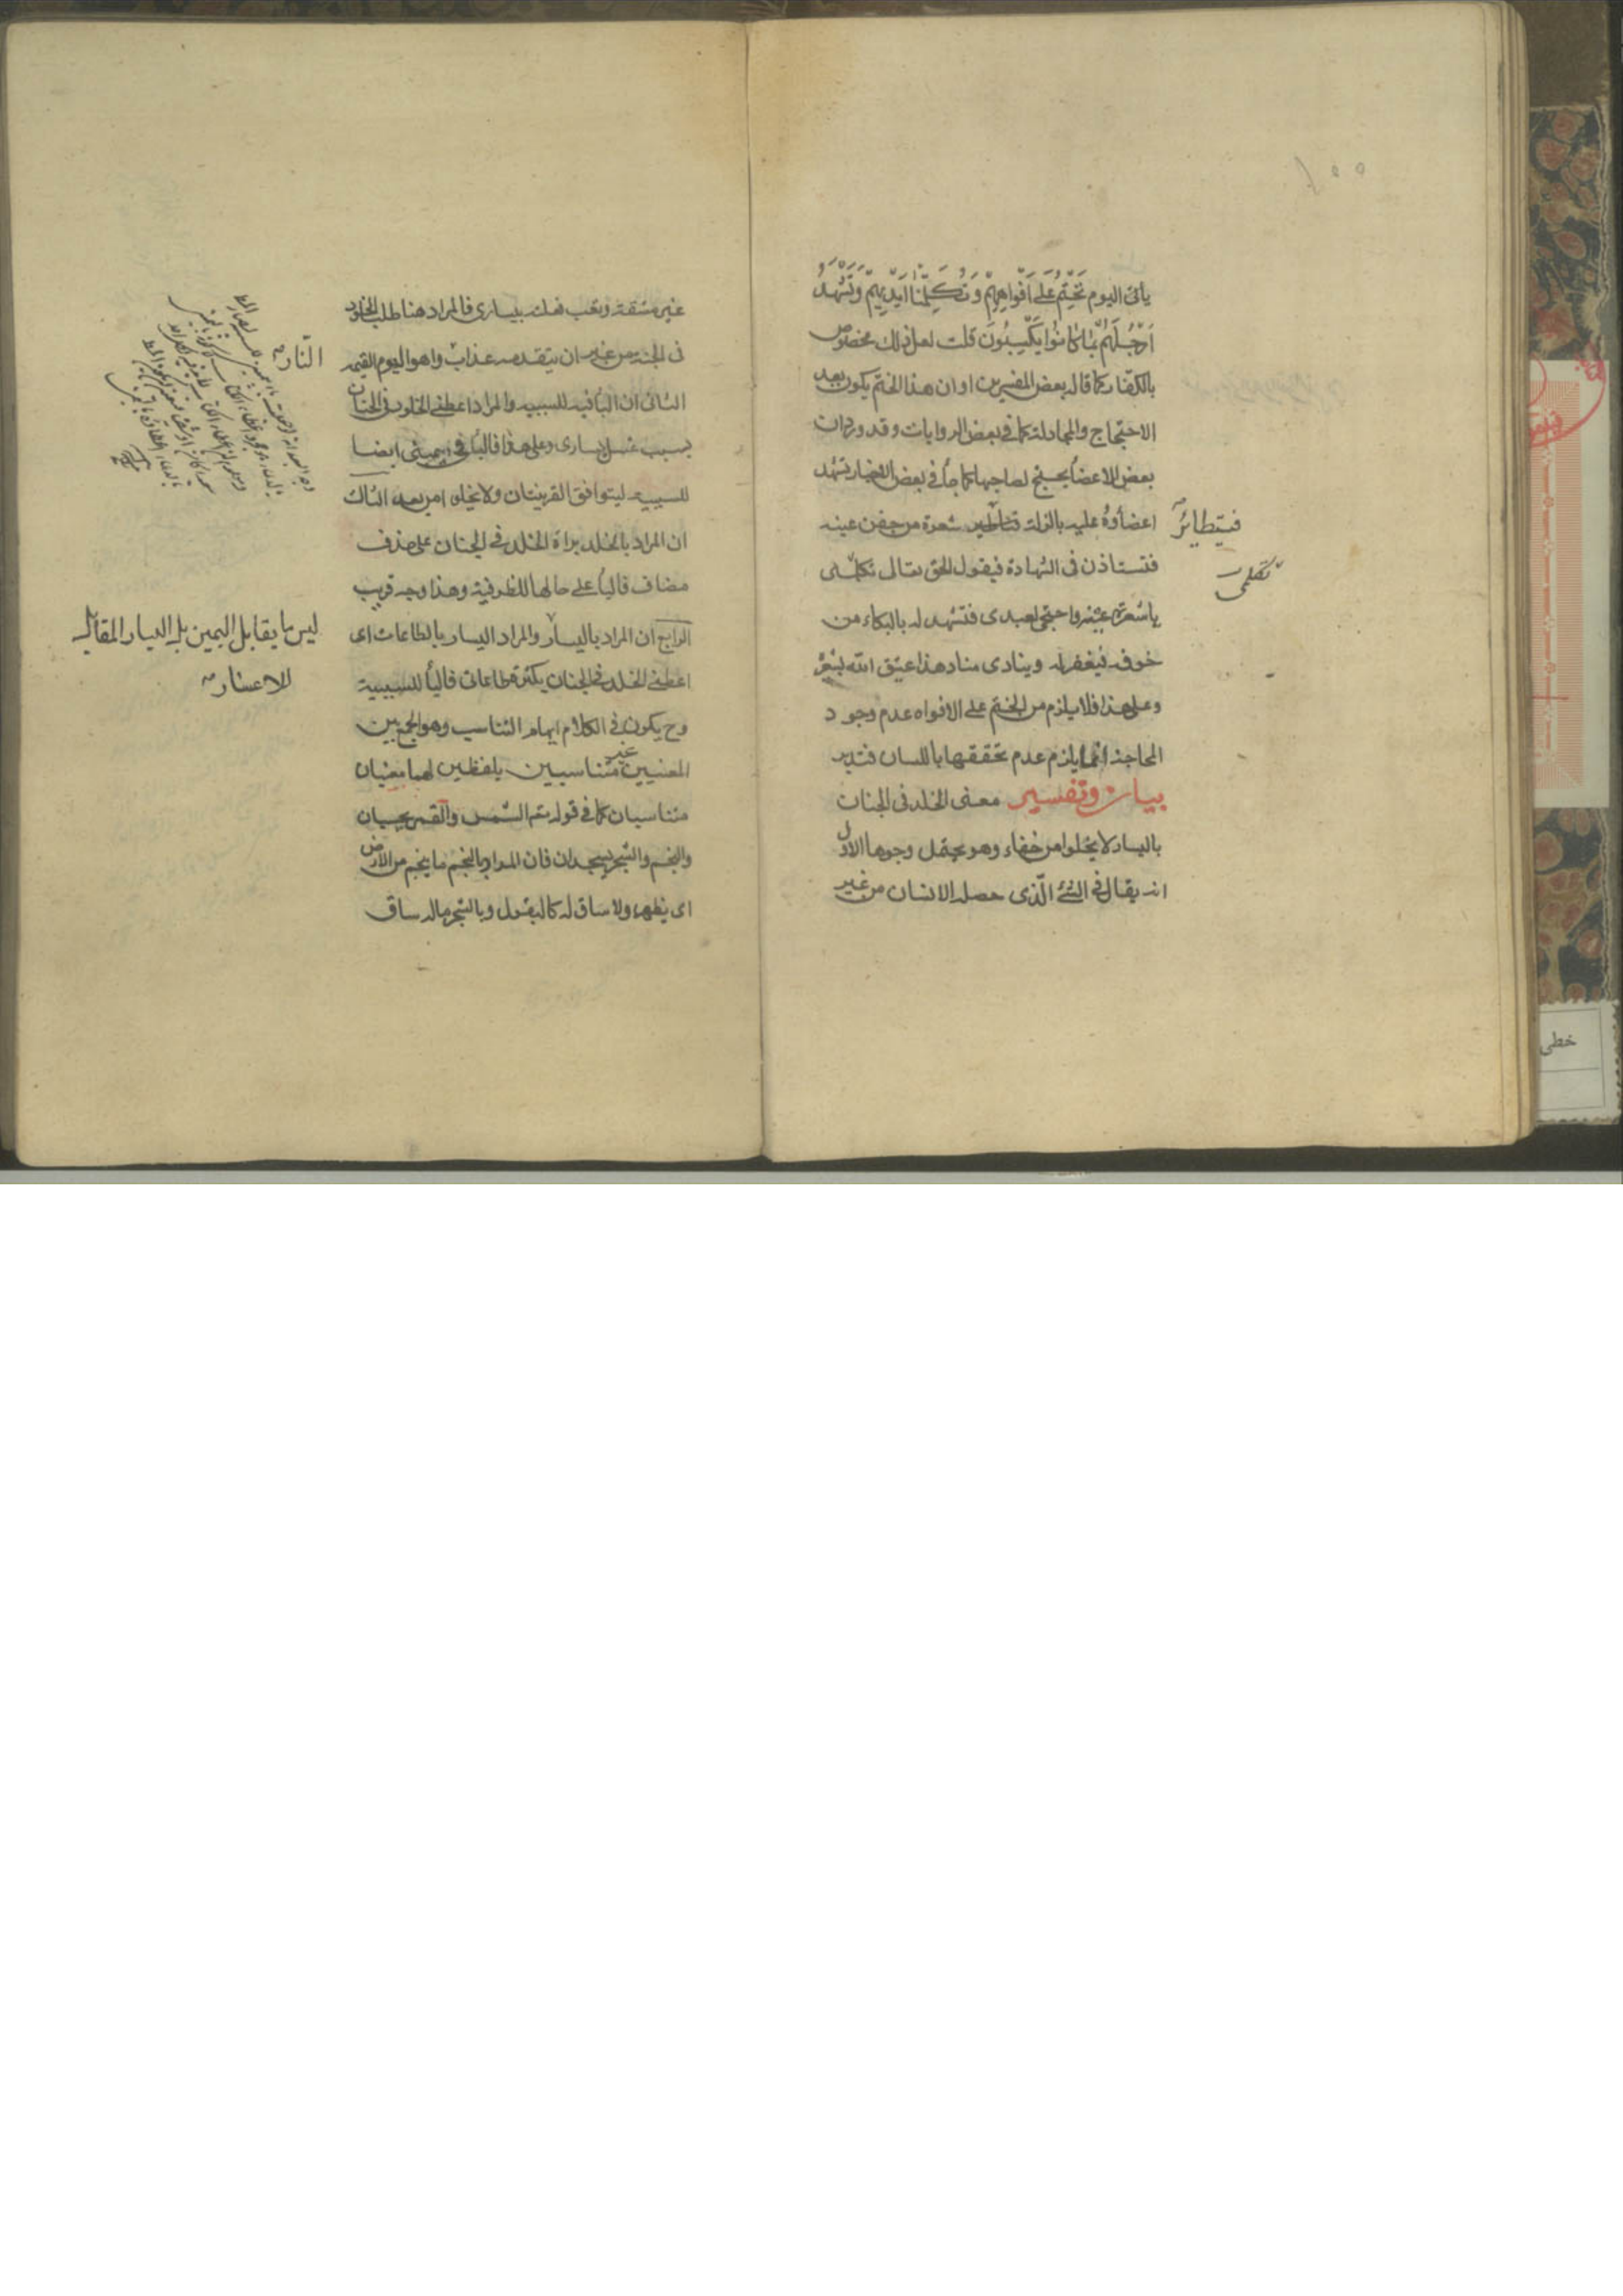 يأتى اليوم نَختِمُ عَلى اَفواهِهِم وَ تُكَلِّمُنا اَيديهِم وَتَشهَدُ
اَرجُلُهُم بِما كانُوا يَكسِبُونَ قلت لعل ذلك مخصوص
بالكفار كما قاله بعض المفسرين او ان هذا الختم يكون بعد
الاحتجاج والمجادلة كما فى بعض الروايات وقد ورد ان
بعض الاعضا يحتج لصاحبها كما جاء فى بعض الاخبار تشهد
اعضاؤه عليه بالزلة شعرة من جفن عينه
فيتطاير
فتستاذن فى الشهادة فيقول الحق تعالى تكلمى
تكلمى
يا شعرة عينه واحتجى لعبدى فتشهد له بالبكاء من
خوفه فيغفر له وينادى مناد هذا عتيق الله بشعرة
وعلى هذا فلا يلزم من الختم على الافواه عدم وجود
المحاجة انما يلزم عدم تحققها باللسان فتدبر
بيان وتفسير معنى الخلد فى الجنان
باليسار لا يخلوا من خفاء وهو يحتمل وجوها الاول
انه يقال فى الشئ الّذى حصله الانسان من غير
غير مشقة وتعب فعلته بيسارى فالمراد هنا طلب الخلود
فى الجنة من غير ان يتقدمه عذاب واهوال يوم القيمه
النار
الثانى ان البا فيه للسببيه والمراد اعطنى الخلود فى الجنان
بسبب غسل يسارى وعلى هذا فالبا فى بيمينى ايضا
للسببيه ليتوافق القرينتان ولا يخلو من بعد الثالث
ان المراد بالخلد براة الخلد فى الجنان على حذف
مضاف فالبا على حالها للظرفية وهذا وجه قريب
الرابع ان المراد باليسار والمراد اليسار بالطاعات اى
ليس ما يقابل اليمين بل اليسار المقابل
للاعسار
اعطنى الخلد فى الجنان بكثرة طاعاتى فالبا للسببية
وح يكون فى الكلام ايهام التناسب وهو الجمع بين
المعنيين غير متناسبين بلفظين لهما معنيان
متناسبان كما فى قوله تعم الشمس والقمر بحسبان
والنجم والشجر يسجدان فان المراد بالنجم ما ينجم من الارض
اى يظهر ولا ساق له كالبقول وبالشجر ماله ساق
خطى